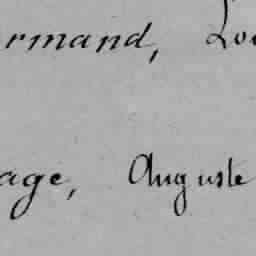 ormand, Lou
age, Auguste